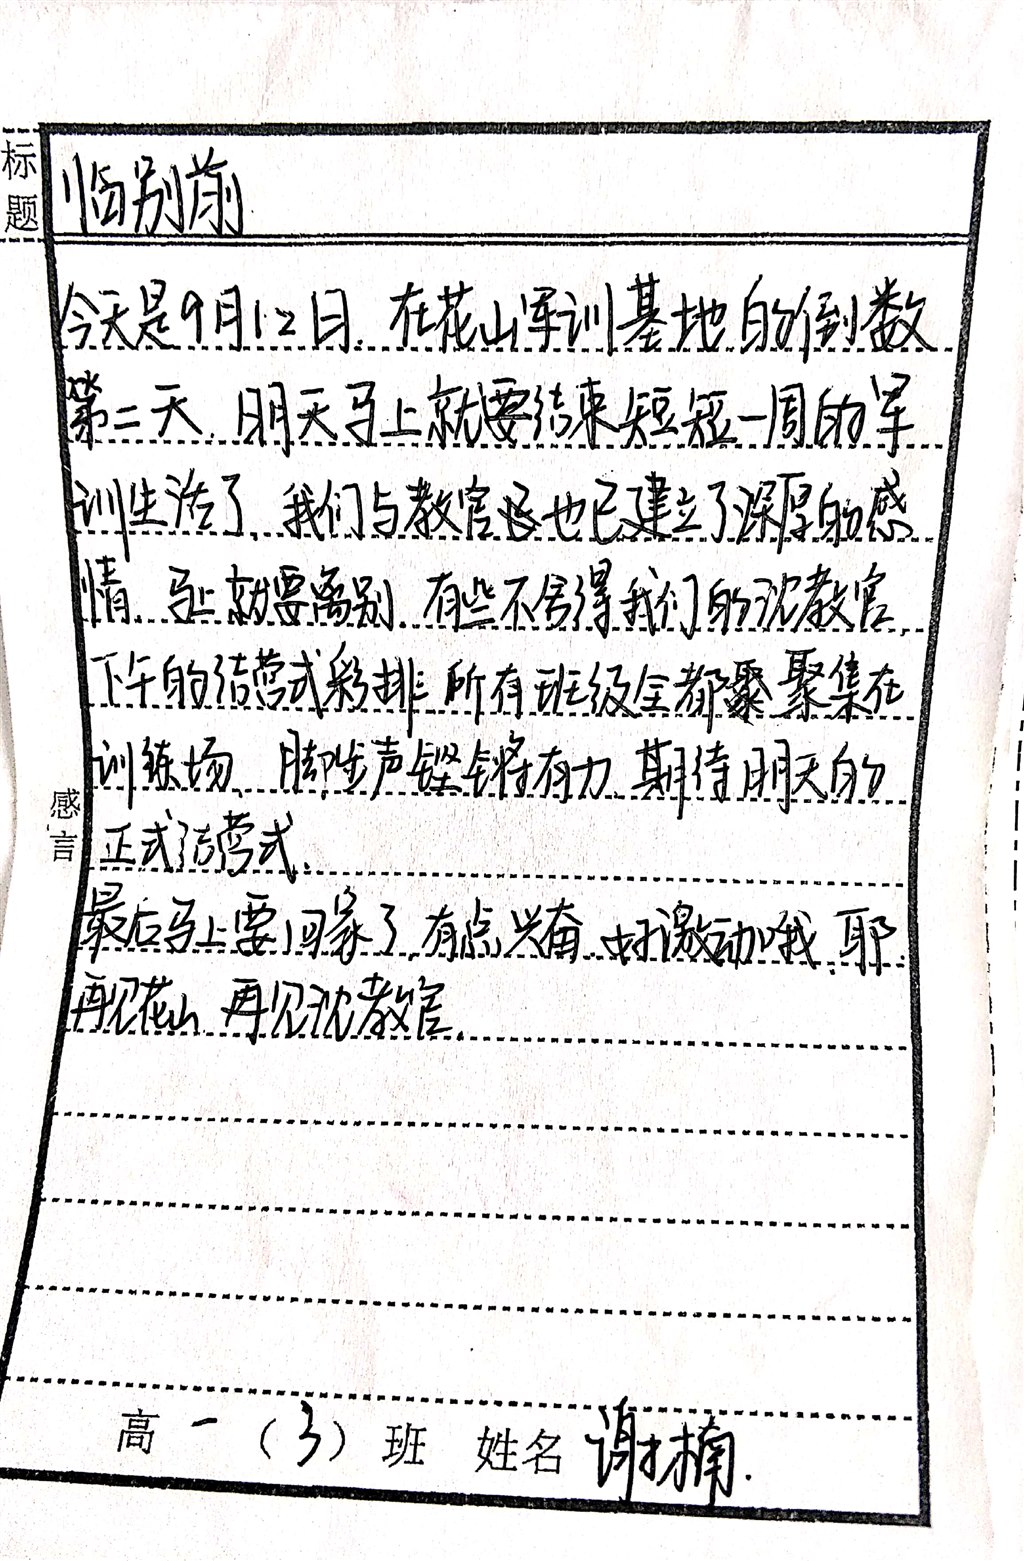 标题
临别前
今天是9月12日.在花山军训基地的倒数
第二天.明天马上就要结束短短一周的军
训生活了.我们与教官也已建立了深厚的感
情.马上就要离别.有些不舍得我们的沈教官.
下午的结营式彩排.所有班级全都聚集在
训练场.脚步声铿锵有力.期待明天的
正式结营式.
感言
最后马上要回家了.有点兴奋.好激动哦.耶.
再见花山.再见沈教官.
高一(3)班 姓名 谢楠.